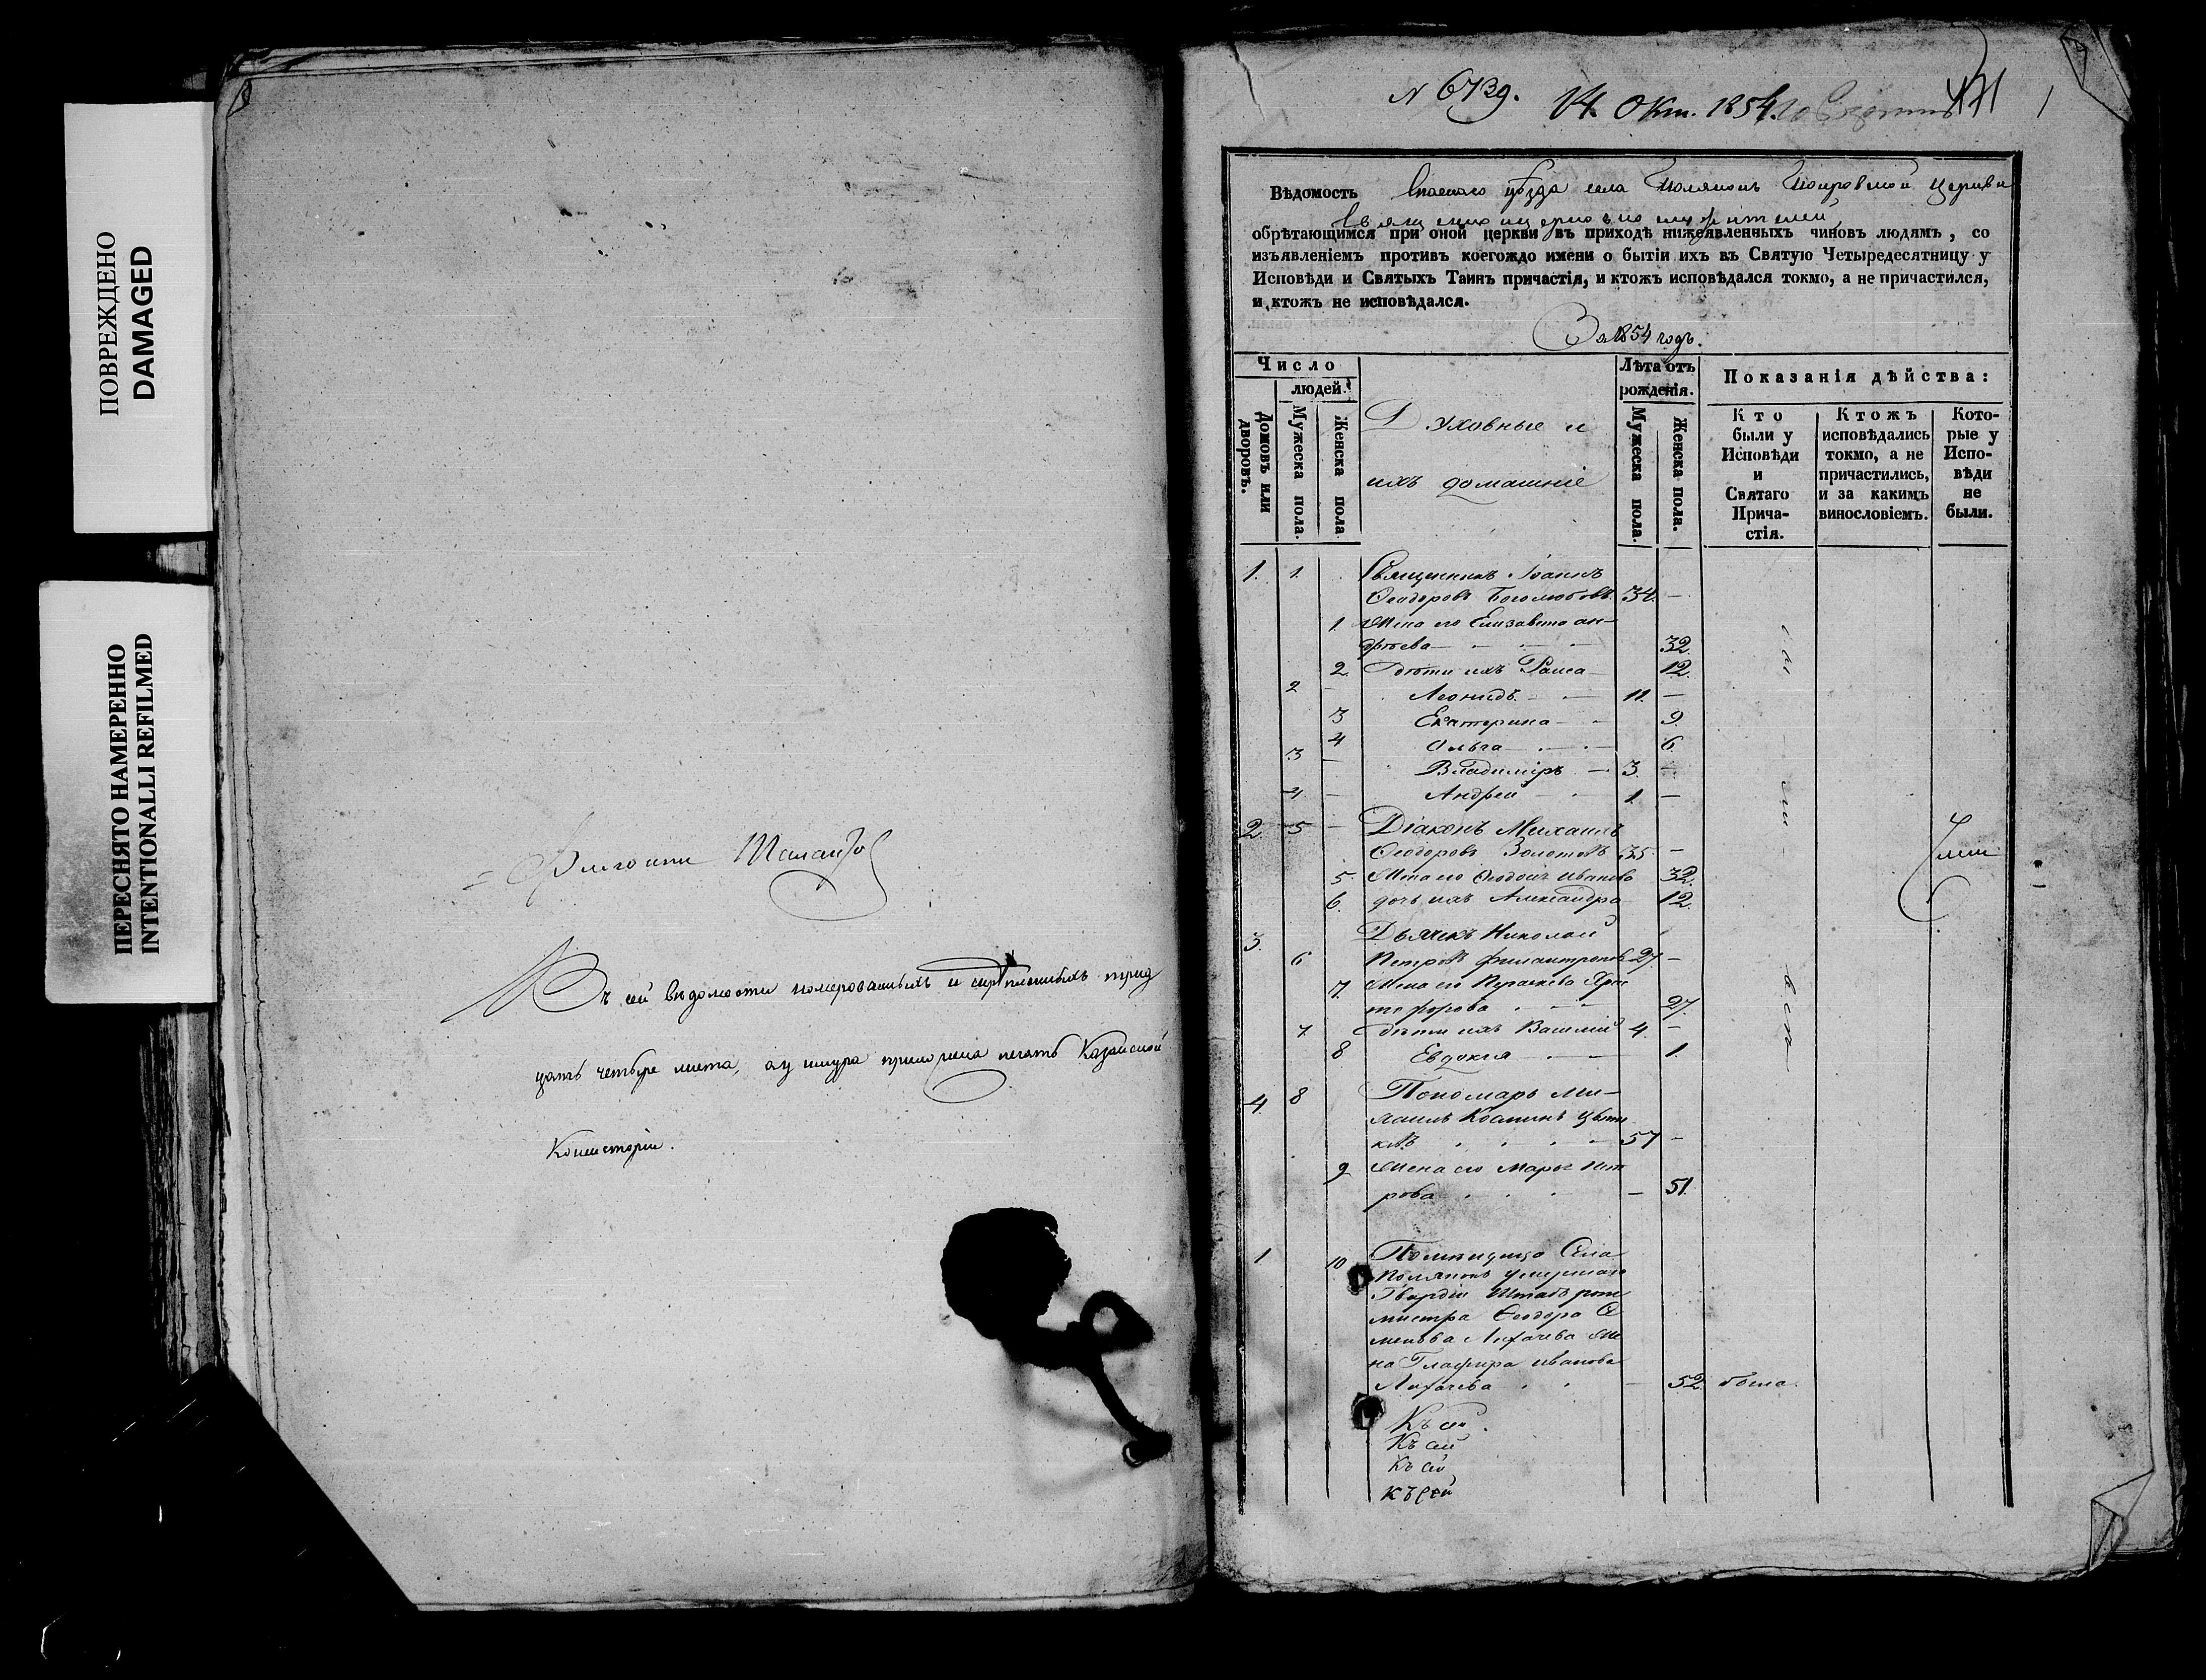 ПОВРЕЖДЕНО
DAMAGED
ПЕРЕСНЯТО НАМЕРЕННО
INTENTIONALLI REFILMED
Въ сей вѣдомости номерованныхъ и скрѣпленныхъ трид
цать четыре листа, а у шнура приложена печать Казанской
Консисторіи.
N 6739. 14 Окт. 1854.
1
Вѣдомость Спасскаго уѣзда села Полянокъ Покровской церкви
священноцерковнослужителей
обрѣтающимся при оной церкви въ приходѣ нижеявленныхъ чиновъ людямъ, со
изъявленіемъ противъ коегождо имени о бытіи ихъ въ Святую Четыредесятницу у
Исповѣди и Святыхъ Таинъ причастія, и ктожъ исповѣдался токмо, а не причастился,
и ктожъ не исповѣдался.
За 1854 годъ.
Число
людей.
Домовъ или дворовъ.
Мужеска пола.
Женска пола
Духовные и
ихъ домашніе
Лѣта отъ
рожденія.
Мужеска пола.
Женска пола.
Показанія дѣйства:
Кто
были у
Исповѣди
и
Святаго
Прича-
стія.
Ктожъ
исповѣдались
токмо, а не
причастились,
и за какимъ
винословіемъ.
Кото-
рые у
Испо-
вѣди
не
были.
1. 1. Священникъ Іоаннъ
Ѳеодоровъ Боголюбовъ. 34. —
1. Жена его Елизавета ан-
дреева — 32.
2. Дѣти ихъ Раиса — 12.
2 — Леонидъ — 11. —
3 Екатерина — 9.
4 Ольга — 6.
3 — Владиміръ — 3. —
4 — Андрей — 1. —
2. 5 — Діаконъ Михаилъ
Ѳеодоровъ Золотовъ 35. —
5. Жена его Ѳеодосія Иванова 32.
6. дочь ихъ Александра 12.
3. Дьячекъ Николай
6 Петровъ Филантроповъ 27. —
7. Жена его Параскева Хри
тофорова 27.
7. дѣти ихъ Василій 4. —
8 Евдокія — 1.
4. 8 Пономарь Ми-
хаилъ Козминъ Цвѣт
ковъ — 57 —
9 Жена его Марья Пет
рова — 51.
1 10 Помѣщица Села
Полянокъ умершаго
Гвардіи Штабъ рот
мистра Ѳеодора Се
менова Лихачева же
на Глафира Иванова
Лихачева — 52. была.
Къ сей
Къ сей
Къ сей
Къ сей